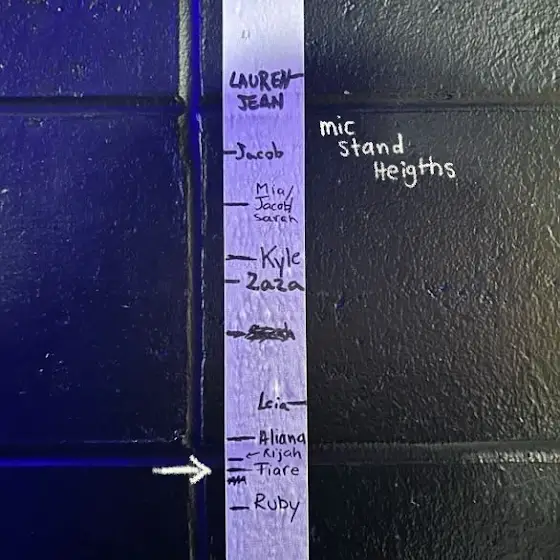 LAUREN
JEAN
mic
stand
Heigths
Jacob
Mia/
Jacob/
Sarah
Kyle
Zaza
Leia
Aliana
Rijah
Tiare
Ruby